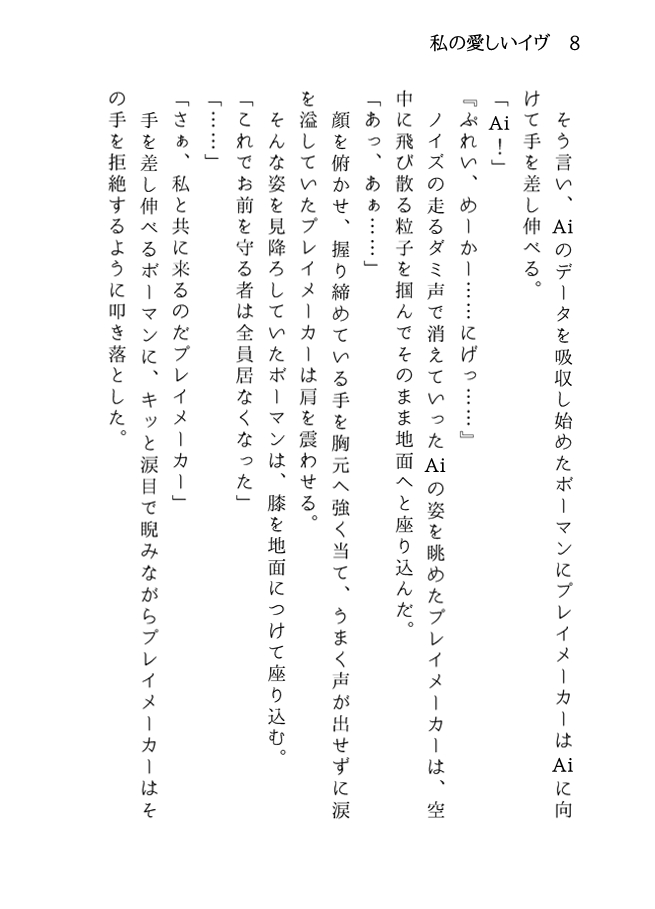 私の愛しいイヴ　8
　そう言い、Aiのデータを吸収し始めたボーマンにプレイメーカーはAiに向
けて手を差し伸べる。
「Ai！」
『ぷれい、めーかー……にげっ……』
　ノイズの走るダミ声で消えていったAiの姿を眺めたプレイメーカーは、空
中に飛び散る粒子を掴んでそのまま地面へと座り込んだ。
「あっ、あぁ……」
　顔を俯かせ、握り締めている手を胸元へ強く当て、うまく声が出せずに涙
を溢していたプレイメーカーは肩を震わせる。
　そんな姿を見降ろしていたボーマンは、膝を地面につけて座り込む。
「これでお前を守る者は全員居なくなった」
「……」
「さぁ、私と共に来るのだプレイメーカー」
　手を差し伸べるボーマンに、キッと涙目で睨みながらプレイメーカーはそ
の手を拒絶するように叩き落とした。